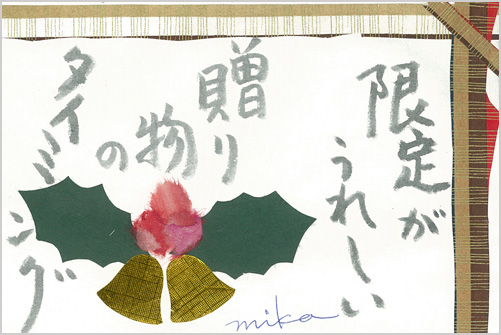 限定が
うれーしい
贈り
物
の
タイミング
mika